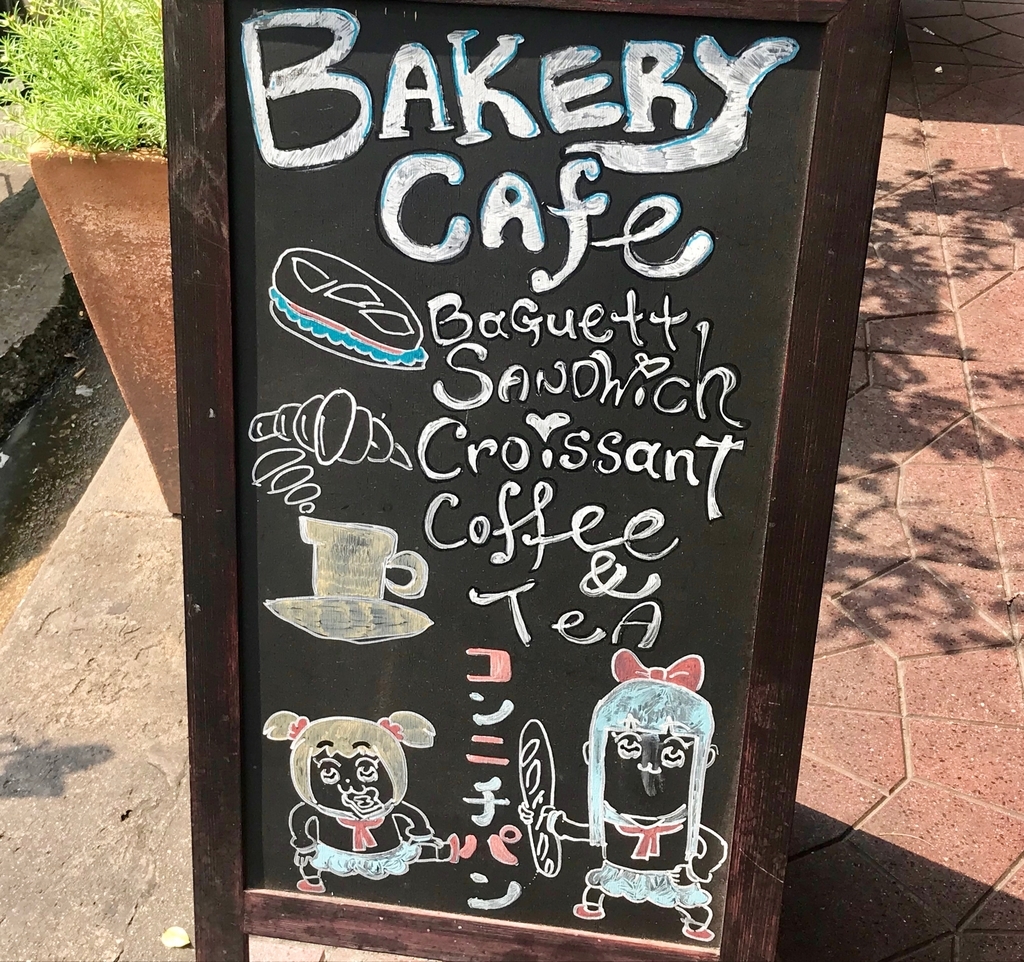 BAKERY
Cafe
BaGuett,
SANDWich
Croissant
Coffee
&
TeA
コンニチパン